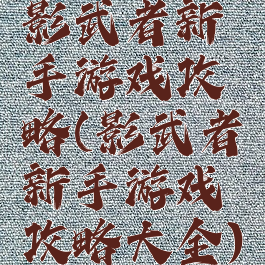 影武者新
手游戏攻
略(影武者
新手游戏
攻略大全)